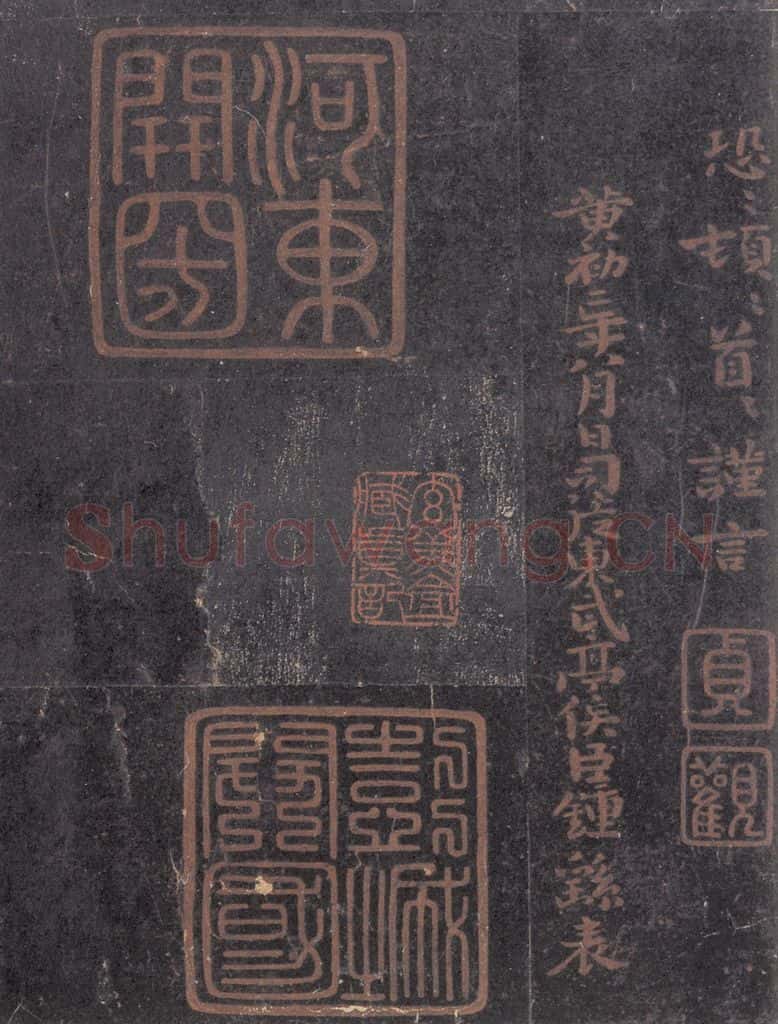 恐〻頓〻首〻謹言
貞
觀
黄初二年八月日司徒東武亭侯臣鍾繇表
河東
開圀
Shufawang.CN
彭城
開國